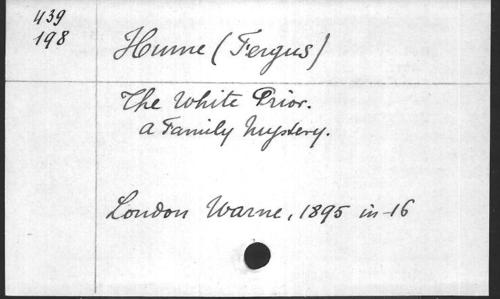 439
198
Hume (Fergus)
The White Prior.
a Family Mystery.
London Warne, 1895 in-16